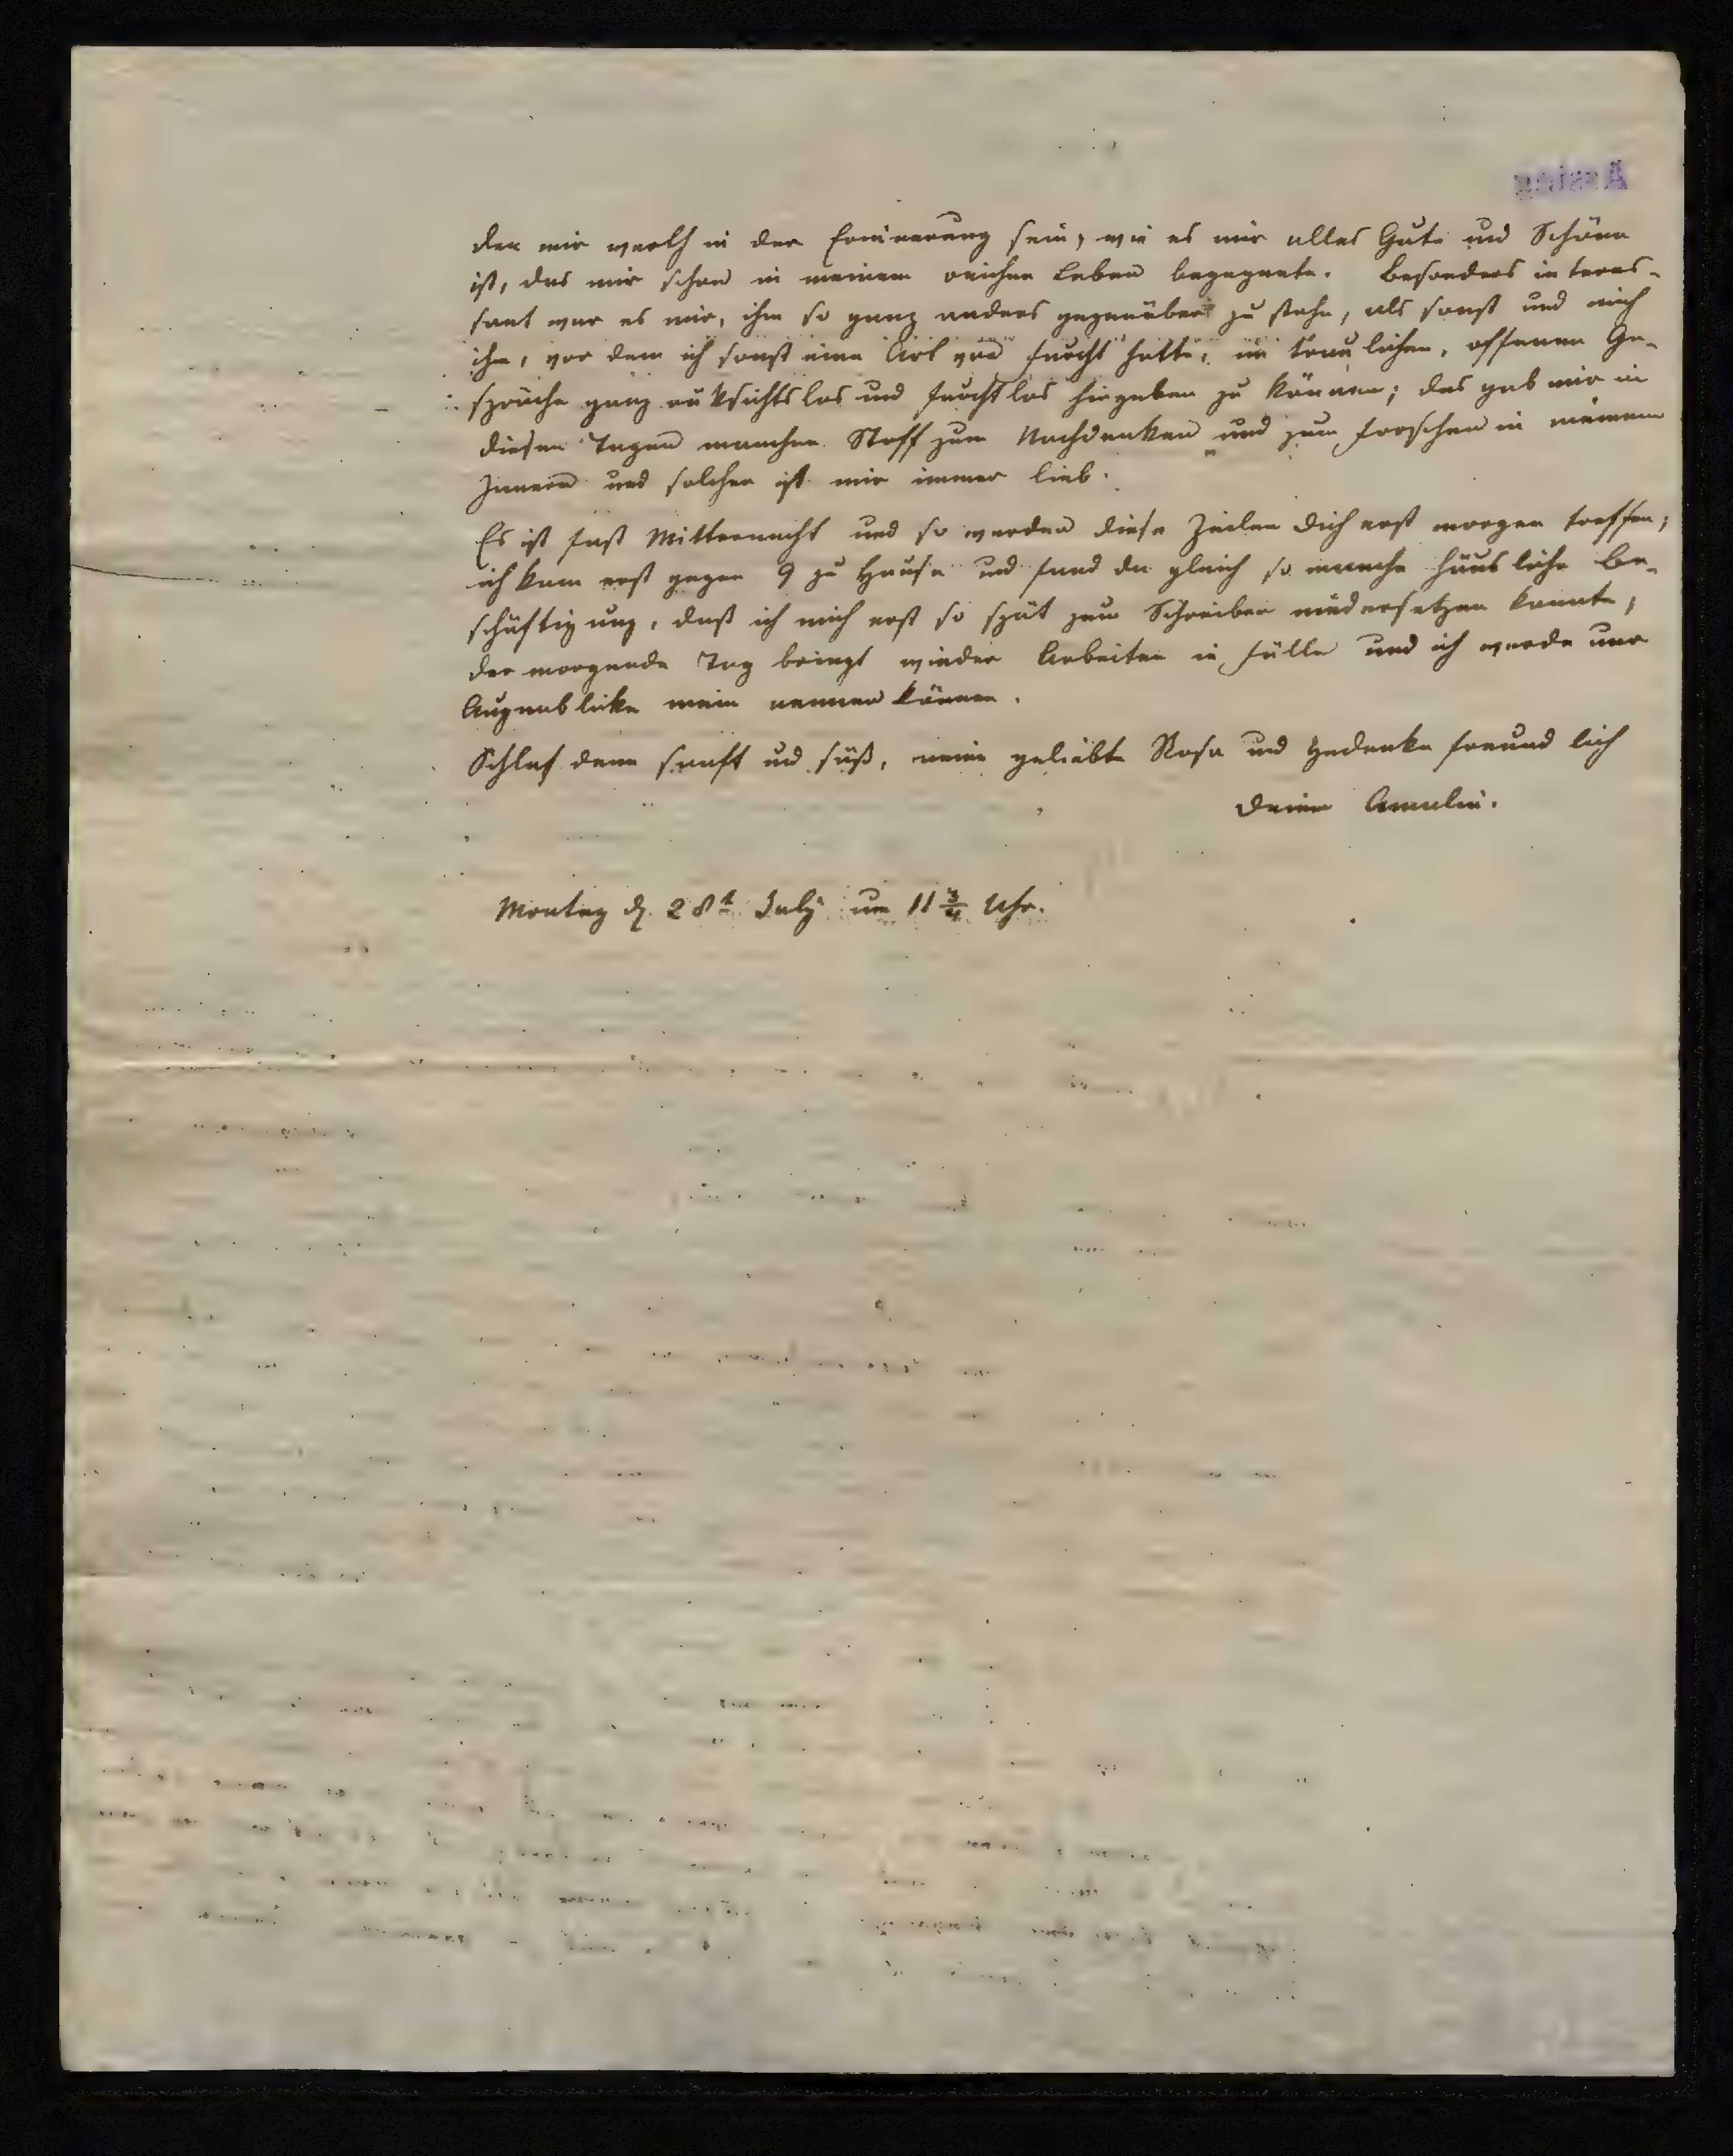 der mir werth in der Erinnerung sein, wie es mir alles Gute und Schöne
ist, das mir schon in meinem reichen Leben begegnete. Besonders interes-
sant war es mir, ihm so ganz anders gegenüber zu stehn, als sonst und mich
ihm, vor dem ich sonst eine Art von Furcht hatte, im traulichen, offenen Ge-
spräche ganz rüksichtslos und furchtlos hingeben zu können; das gab mir in
diesen Tagen manchen Stoff zum Nachdenken und zum Forschen in meinem
Innern und solcher ist mir immer lieb.
Es ist fast Mitternacht und so werden diese Zeilen Dich erst morgen treffen;
ich kam erst gegen 9 zu Hause und fand da gleich so manche häusliche Be-
schäftigung, daß ich mich erst so spät zum Schreiben niedersetzen konnte;
der morgende Tag bringt wieder Arbeiten in Fülle und ich werde nur
Augenblicke mein nennen können.
Schlaf denn sanft und süß, meine geliebte Rosa und gedenke freundlich
Deiner Amalie.
Montag d. 28t July um 11 3/4 Uhr.
Assing